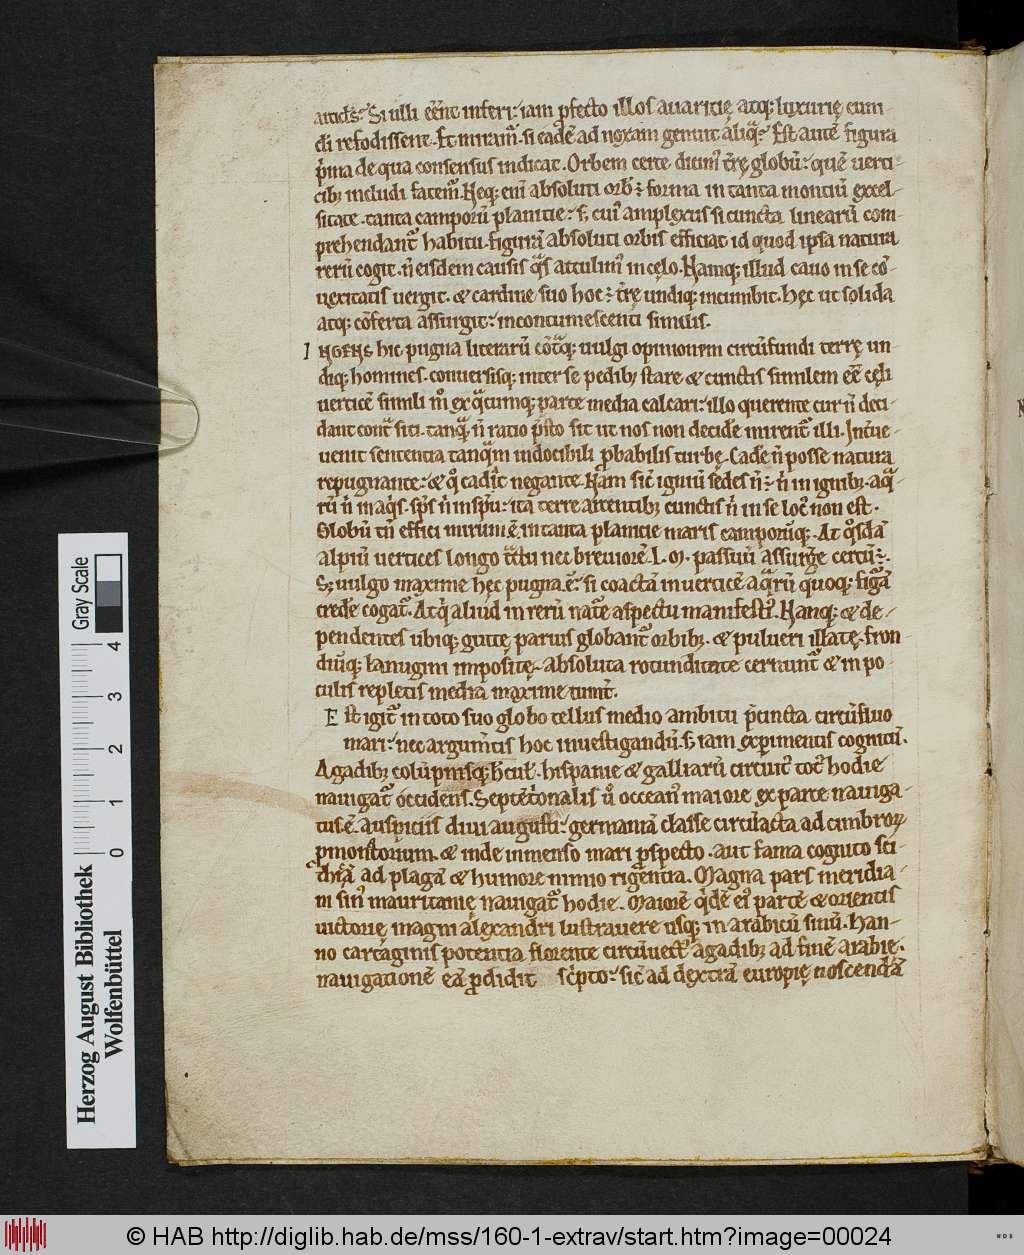 aitidẽs. Si ulli eẽnt inferi. iam p̃fecto illos auaritię atq; luxurię cuni-
cli refodissent. Et miram̃. si eadẽ ad noxam genuit aliq̃. Est autẽ figura
p̃ma de qua consensus indicat. Orbem certe dicim᷒ t̃rę globũ. quẽ uerti-
cib; includi fatem᷒. Neq; eni᷒ absoluti orb᷒ ÷ forma in tanta montiũ excel-
sitate. tanta camporũ planitie. s; cui᷒ amplexus si cuncta linearũ com-
prehendant᷒ habitu. figurã absoluti orbis efficiat id quod ipsa natura
rerũ cogit. ñ eisdem causis q̃s attulim᷒ in cęlo. Namq; illud cauo in se cõ-
uexitatis uergit. & cardine suo hoc ÷ t̃rę undiq; incumbit. Hęc ut solida
atq; cõferta assurgit. incontumescenti similis.
INGENS hic pugna literarũ cõtq; uulgi opinionem circũfundi terrę un-
diq; homines. conuersisq; inter se pedib; stare & cunctis similem eẽ cęli
uerticẽ simili m᷒ ex q̃cumq; parte media calcari. illo querente cur ñ deci-
dant cont᷒ siti. tanq̃ ñ ratio p̃sto sit ut nos non decidẽ mirent᷒ illi. Int᷒ue-
uenit sententia tanq̃m indocibili p̃babilis turbę. Cadẽ ñ posse natura
repugnante. & q᷒ cadit᷒ negante. Nam sic᷒ igniũ sedes ñ ÷ ñ in ignib;. aq̃-
rũ ñ in aq᷒s. sp̃s ñ in sp̃u. ita terre arcentib; cunctis ñ in se loc᷒ non est.
Globũ tñ effici mirum ẽ in tanta planitie maris camporũq;. At q᷒sdã
alpiũ uertices longo tc̃tu nec breuiorẽ. L. M. passuũ assurg̃e certũ ÷.
S; uulgo maxime hęc pugna ẽ. si coactã in uerticẽ aq̃rũ quoq; fig᷒ã
credẽ cogat᷒. Atq᷒ aliud in rerũ nat᷒e aspectu manifesti᷒. Namq; & de-
pendentes ubiq; guttę paruis globant᷒ orbib;. & pulueri illatę. fron-
diũq; lanugini impositę. absoluta rotunditate cernunt᷒ & in po-
culis repletis media maxime tum̃t.
Est igit᷒ in toto suo globo tellus medio ambitu p̃cincta circũfluo
mari. nec argum̃tis hoc inuestigandũ. s; iam experimentis cognitũ.
A gadib; colũpnisq; h᷒cul᷒. hispanie & galliarũ circuit᷒ tot᷒ hodie
nauigat᷒ occidens. Septẽt᷒onalis u᷒ occean᷒ maiore ex parte nauiga-
tus ẽ. auspiciis diui augusti. germaniã classe circũacta ad cimbroꝝ
p̃montorium. & inde inmenso mari p̃specto. aut fama cognito sci-
thicã ad plagã & humore nimio rigentia. Magna pars meridia-
ni sin᷒ mauritanię nauigat᷒ hodie. Maiorẽ q᷒dẽ ei᷒ partẽ & orientis
uictorię magni alexandri lustrauere usq; in arabicũ sinũ. Han-
no cartaginis potentia florente circũuect᷒ a gadib; ad finẽ arabie.
nauigationẽ eã p̃didit sc᷒pto. sic᷒ ad dextrã europię noscendã
Herzog August Bibliothek
Wolfenbüttel
0 1 2 3 4
Gray Scale
© HAB http://diglib.hab.de/mss/160-1-extrav/start.htm?image=00024